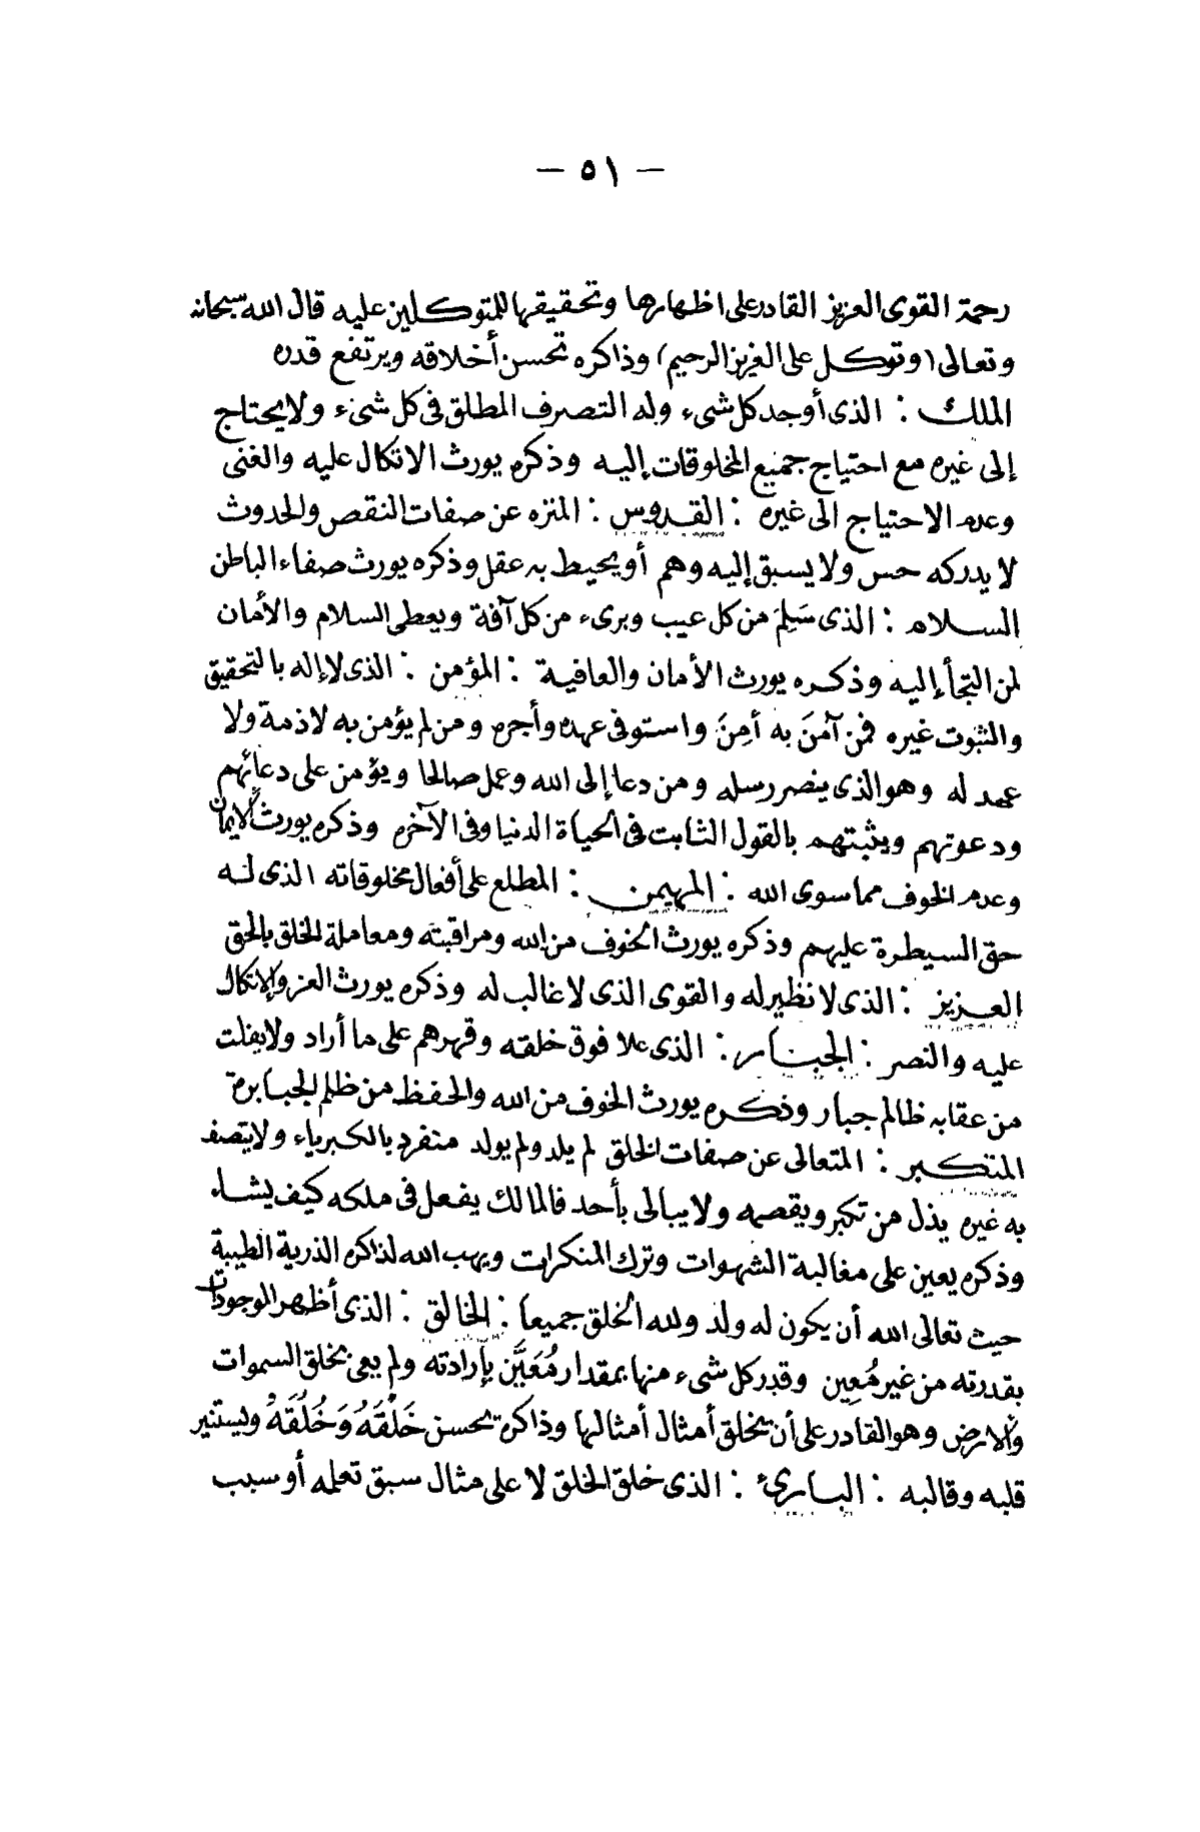 — ٥١ —
رحمة القوى العزيز القادر على اظهارها وتحقيقها للمتوكلين عليه قال الله سبحانه
وتعالى (وتوكل على العزيز الرحيم) وذاكره تحسن أخلاقه ويرتفع قدره
الملك : الذى أوجد كل شىء وله التصرف المطلق فى كل شىء ولا يحتاج
إلى غيره مع احتياج جميع المخلوقات إليه وذكره يورث الاتكال عليه والغنى
وعدم الاحتياج الى غيره : القدوس : المنزه عن صفات النقص والحدوث
لا يدركه حس ولا يسبق إليه وهم أو يحيط به عقل وذكره يورث صفاء الباطن
السلام : الذى سَلِمَ من كل عيب وبرىء من كل آفة ويعطى السلام والأمان
لمن التجأ إليه وذكره يورث الأمان والعافية : المؤمن : الذى لا إله بالتحقيق
والثبوت غيره فمن آمَنَ به أمِنَ واستوفى عهده وأجره ومن لم يؤمن به لا ذمة ولا
عهد له وهو الذى ينصر رسله ومن دعا إلى الله وعمل صالحا ويؤمن على دعائهم
ودعوتهم ويثبتهم بالقول الثابت فى الحياة الدنيا وفى الآخره وذكره يورث الايمان
وعدم الخوف مما سوى الله : المهيمن : المطلع على أفعال مخلوقاته الذى له
حق السيطرة عليهم وذكره يورث الخوف من الله ومراقبته ومعاملة الخلق بالحق
العزيز : الذى لا نظير له والقوى الذى لا غالب له وذكره يورث العز والاتكال
عليه والنصر : الجبار : الذى علا فوق خلقه وقهرهم على ما أراد ولا يفلت
من عقابه ظالم جبار وذكره يورث الخوف من الله والحفظ من ظلم الجبابرة
المتكبر : المتعالى عن صفات الخلق لم يلد ولم يولد منفرد بالكبرياء ولا يتصف
به غيره يذل من تكبر ويقصمه ولا يبالى بأحد فالمالك يفعل فى ملكه كيف يشاء
وذكره يعين على مغالبة الشهوات وترك المنكرات ويهب الله لذاكره الذرية الطيبة
حيث تعالى الله أن يكون له ولد ولله الخلق جميعا : الخالق : الذى أظهر الموجودات
بقدرته من غير مُعِين وقدر كل شىء منها بمقدار مُعَيَّن بإرادته ولم يعى بخلق السموات
والارض وهو القادر على أن يخلق أمثال أمثالها وذاكره يحسن خَلْقَهُ وَخُلُقَهُ ويستنير
قلبه وقالبه : البارئ : الذى خلق الخلق لا على مثال سبق تعلمه أو سبب